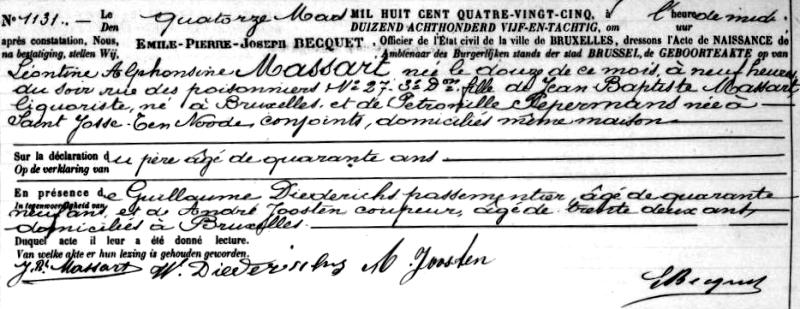 N° 1131. Le quatorze Mars MIL HUIT CENT QUATRE-VINGT-CINQ, à l'heure de midi
Den DUIZEND ACHTHONDERD VIJF-EN-TACHTIG, om uur
après constatation, Nous, EMILE-PIERRE-JOSEPH BECQUET, Officier de l'État civil de la ville de BRUXELLES, dressons l'Acte de NAISSANCE de
na bestatiging, stellen Wij, Ambtenaar des Burgerlijken stands der stad BRUSSEL, de GEBOORTEAKTE op van
Léontine Alphonsine Massart, née le douze de ce mois, à neuf heures
du soir rue des poissonniers N° 27. 3e Don. fille de Jean Baptiste Massart
liquoriste, né à Bruxelles, et de Pétronille Pepermans née à
Saint Josse-Ten Noode, conjoints, domiciliés même maison
Sur la déclaration du père âgé de quarante ans
Op de verklaring van
En présence de Guillaume Diederichs passementier, âgé de quarante
In tegenwoordigheid van
neuf ans, et de André Joosten coupeur, âgé de trente deux ans,
domiciliés à Bruxelles.
Duquel acte il leur a été donné lecture.
Van welke akte er hun lezing is gehouden geworden.
J. Bt. Massart W. Diederichs M Joosten
EBecquet